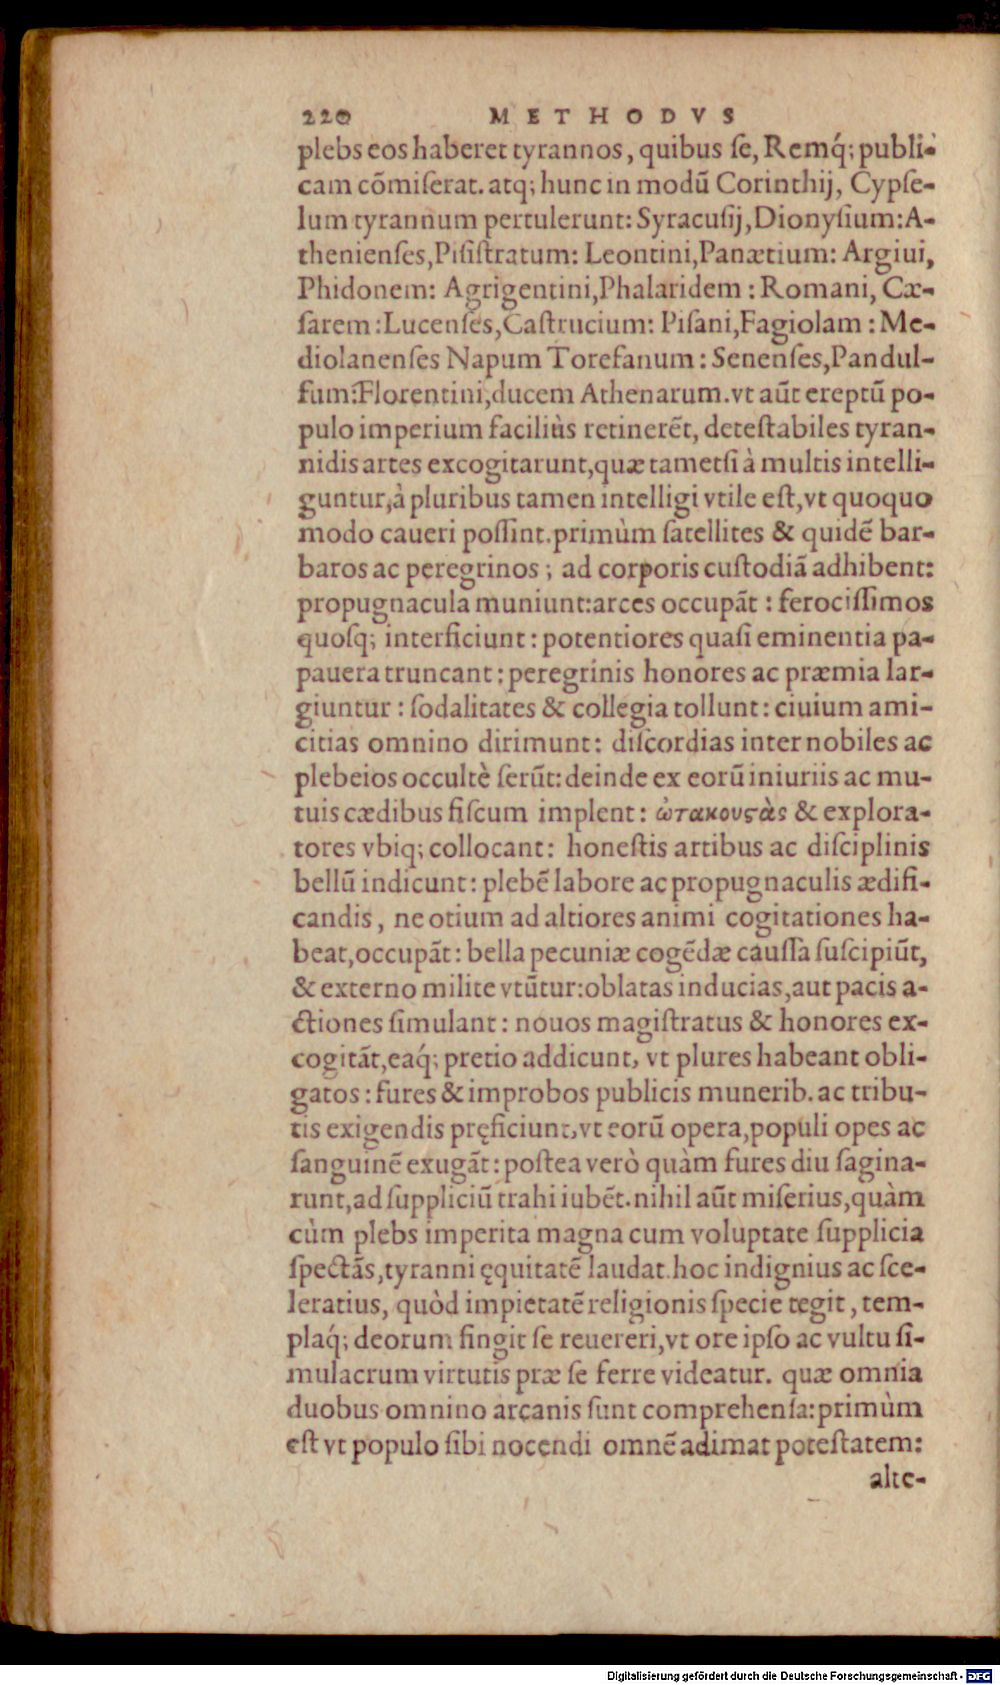 220 METHODVS
plebs eos haberet tyrannos, quibus se, Remq́; publi-
cam cōmiserat. atq; hunc in modū Corinthij, Cypse-
lum tyrannum pertulerunt: Syracusij, Dionysium: A-
thenienses, Pisistratum: Leontini, Panætium: Argiui,
Phidonem: Agrigentini, Phalaridem: Romani, Cæ-
sarem: Lucenses, Castrucium: Pisani, Fagiolam: Me-
diolanenses Napum Torefanum: Senenses, Pandul-
fum: Florentini, ducem Athenarum. vt aūt ereptū po-
pulo imperium faciliùs retinerēt, detestabiles tyran-
nidis artes excogitarunt, quæ tametsi à multis intelli-
guntur, à pluribus tamen intelligi vtile est, vt quoquo
modo caueri possint. primùm satellites & quidē bar-
baros ac peregrinos; ad corporis custodiā adhibent:
propugnacula muniunt: arces occupāt: ferocissimos
quosq; interficiunt: potentiores quasi eminentia pa-
pauera truncant: peregrinis honores ac præmia lar-
giuntur: sodalitates & collegia tollunt: ciuium ami-
citias omnino dirimunt: discordias inter nobiles ac
plebeios occultè serūt: deinde ex eorū iniuriis ac mu-
tuis cædibus fiscum implent: ὠτακουςὰς & explora-
tores vbiq; collocant: honestis artibus ac disciplinis
bellū indicunt: plebē labore ac propugnaculis ædifi-
candis, ne otium ad altiores animi cogitationes ha-
beat, occupāt: bella pecuniæ cogēdæ caussa suscipiūt,
& externo milite vtūtur: oblatas inducias, aut pacis a-
ctiones simulant: nouos magistratus & honores ex-
cogitāt, eaq́; pretio addicunt, vt plures habeant obli-
gatos: fures & improbos publicis munerib. ac tribu-
tis exigendis pręficiunt, vt eorū opera, populi opes ac
sanguinē exugāt: postea verò quàm fures diu sagina-
runt, ad suppliciū trahi iubēt. nihil aūt miserius, quàm
cùm plebs imperita magna cum voluptate supplicia
spectās, tyranni ęquitatē laudat. hoc indignius ac sce-
leratius, quòd impietatē religionis specie tegit, tem-
plaq́; deorum fingit se reuereri, vt ore ipso ac vultu si-
mulacrum virtutis præ se ferre videatur. quæ omnia
duobus omnino arcanis sunt comprehensa: primùm
est vt populo sibi nocendi omnē adimat potestatem:
alte-
Digitalisierung gefördert durch die Deutsche Forschungsgemeinschaft - DFG